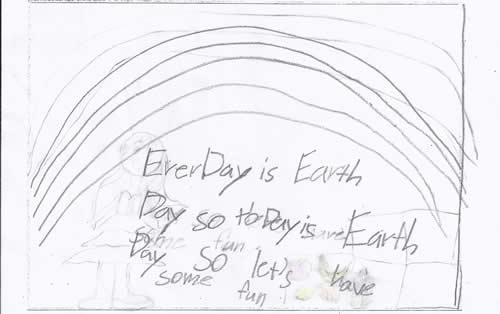 ErerDay is Earth
Day so toDay is Earth
Day so let's have
some fun